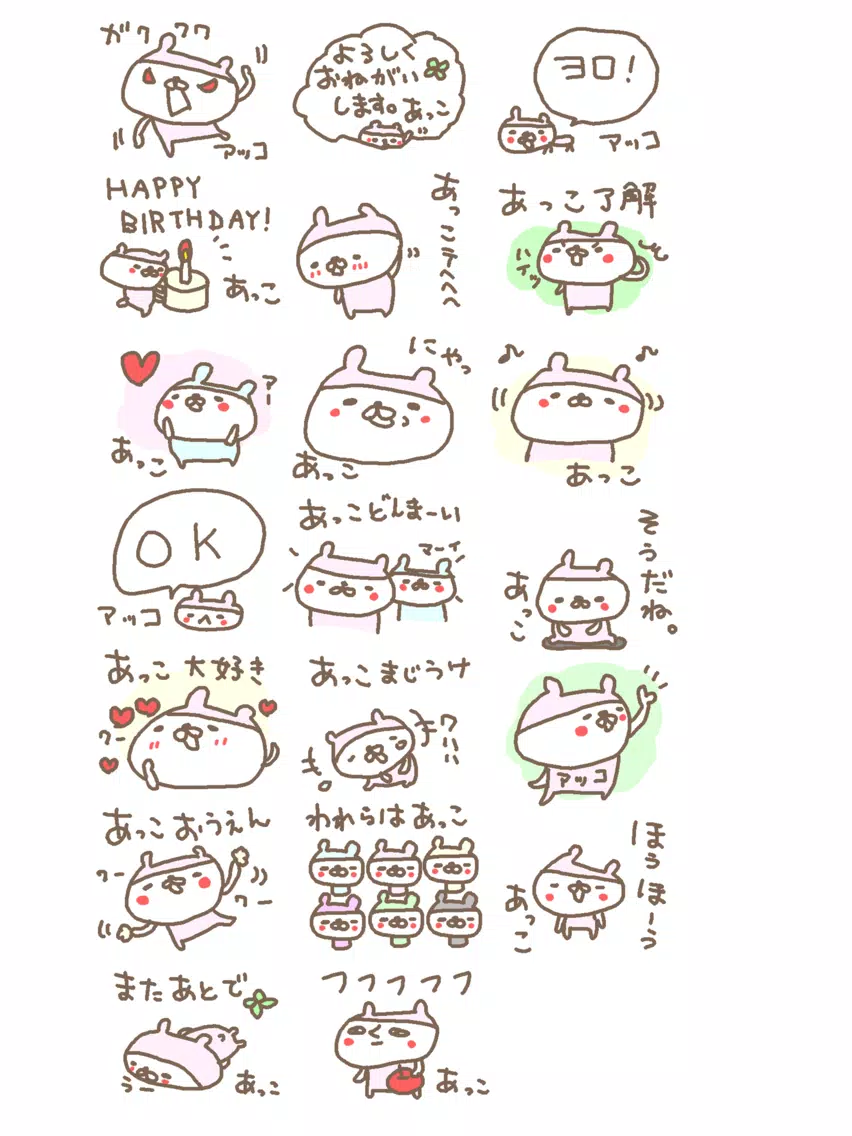 ガクワワ
アッコ
よろしく
おねがい
します。あっこ
ヨロ!
アッコ
HAPPY
BIRTHDAY!
あっこ
あっこテヘヘヘ
あっこ了解
ハイッ
あっこ
にゃっ
あっこ
あっこ
OK
アッコ
あっこどんまーい
マーイ
そうだね。
あっこ
あっこ大好き
ワー
あっこまじうけ
ワハハ
アッコ
あっこおうえん
ワー
ワー
われらはあっこ
ほうほーう
あっこ
またあとで
うー
あっこ
フフフフフ
あっこ